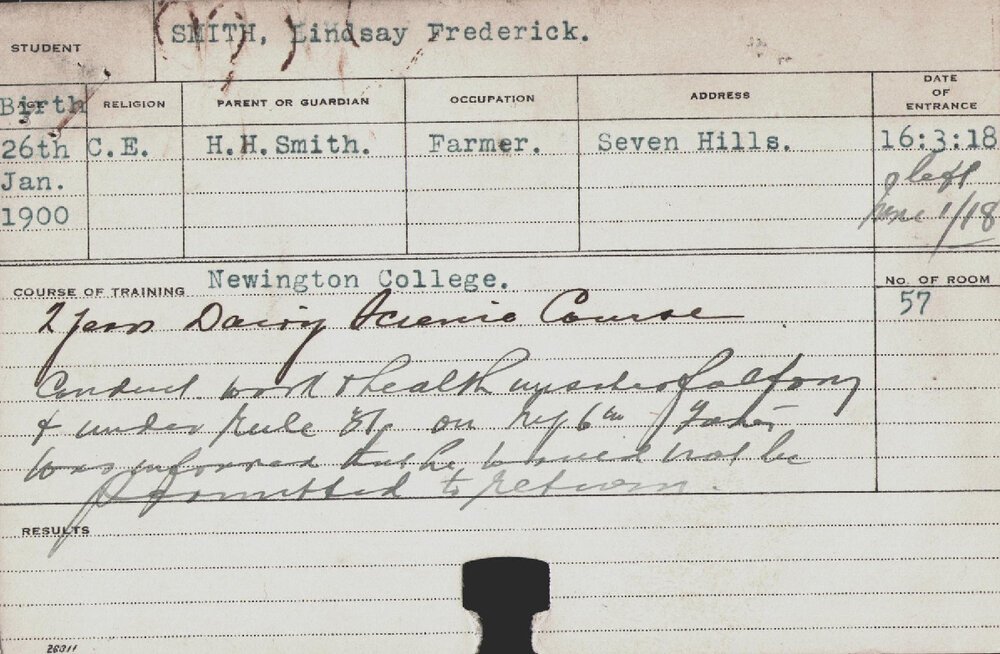 STUDENT SMITH, Lindsay Frederick.
Birth RELIGION PARENT OR GUARDIAN OCCUPATION ADDRESS DATE OF ENTRANCE
26th C.E. H.H.Smith. Farmer. Seven Hills. 16:3:18
Jan. left
1900 June 1/18
COURSE OF TRAINING Newington College. NO. OF ROOM
2 years Dairy Science Course 57
Conduct work & health unsatisfactory
& under Rule on 6th Father
was informed that he would not be
permitted to return.
RESULTS
26311